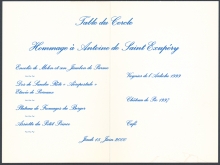 Table du Cercle
Hommage à Antoine de Saint Exupéry
Escabèche de Melon et son Jambon de Parme
Vignes de l'Ardèche 1999
Dos de Sandre Rôti « Aéropostale »
Etuvée de Poireaux
Château de Fa 1997
Plateau de Fromages du Berger
Café
Assiette du Petit Prince
Jeudi 15 Juin 2000